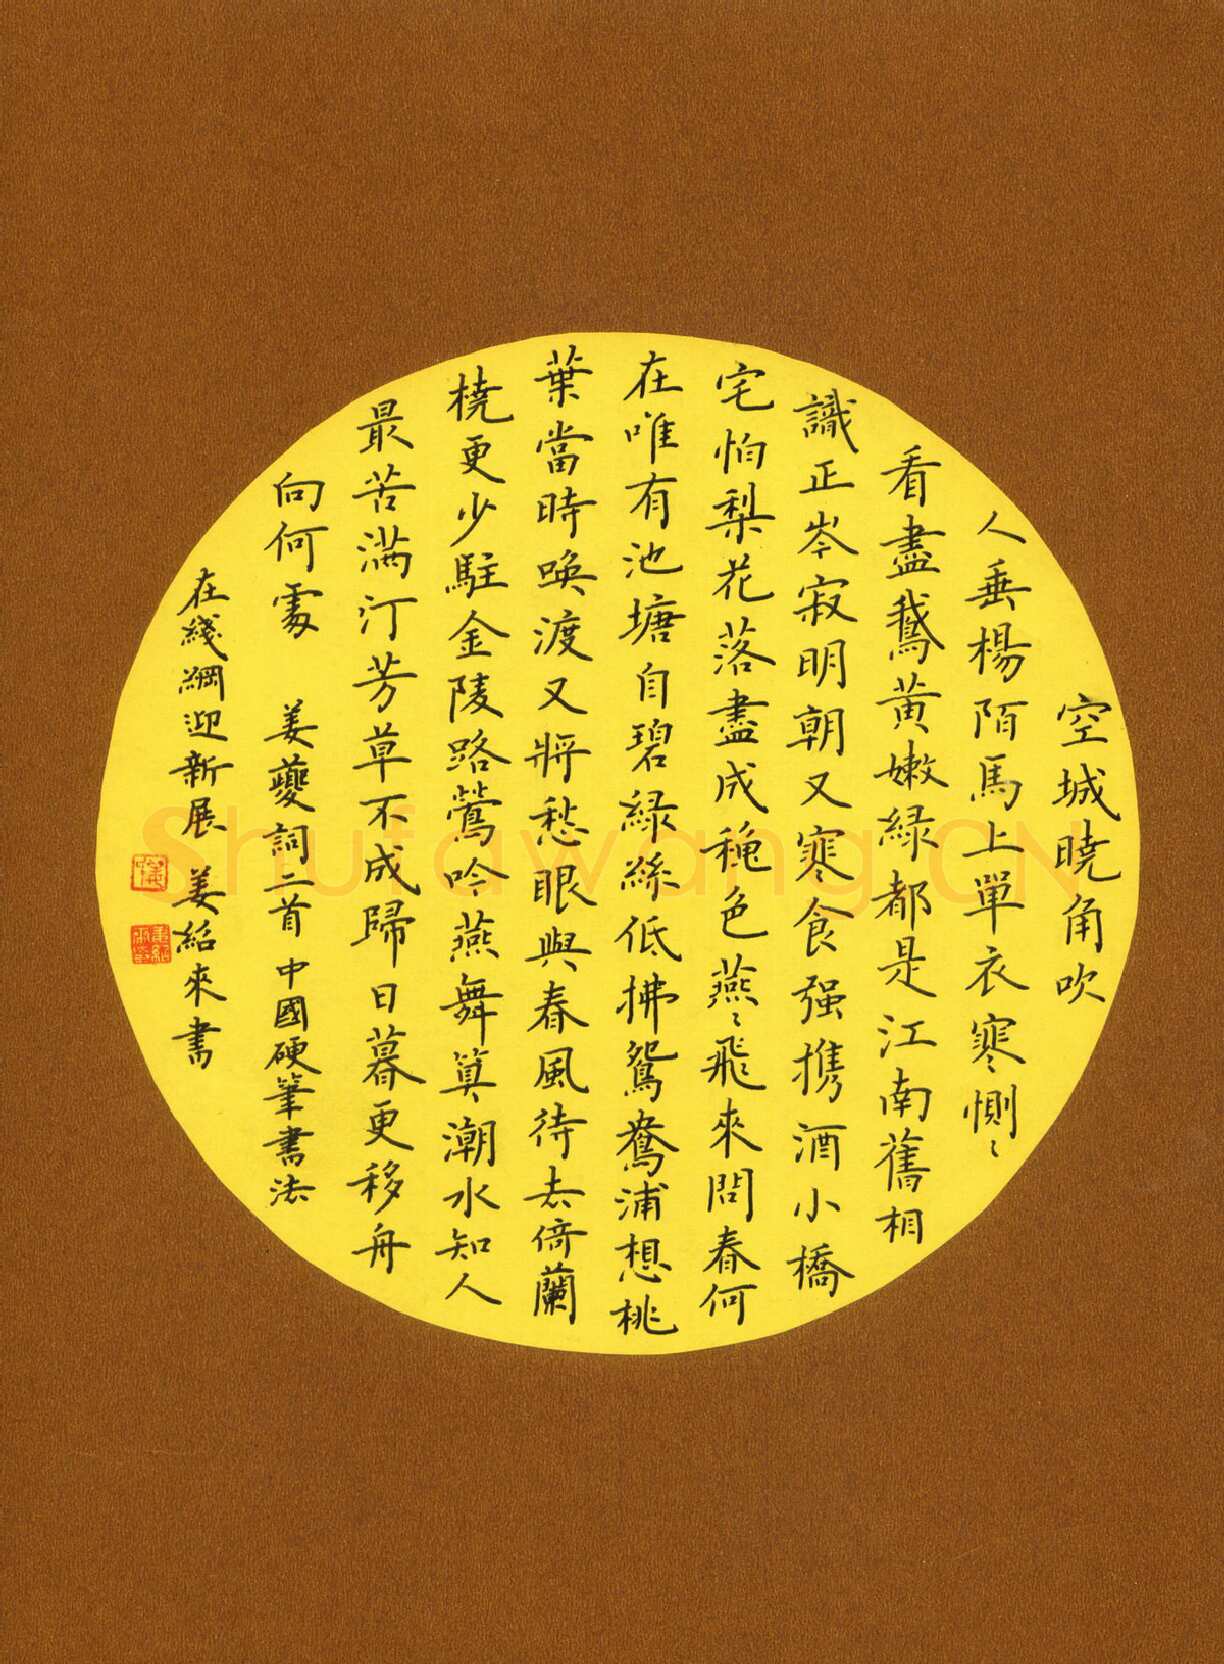 空城曉角吹
人垂楊陌馬上單衣寒惻〻
看盡鵞黃嫩綠都是江南舊相
識正岑寂明朝又寒食强携酒小橋
宅怕梨花落盡成秋色燕〻飛來問春何
在唯有池塘自碧綠絲低拂鴛鴦浦想桃
葉當時喚渡又將愁眼與春風待去倚蘭
橈更少駐金陵路鶯吟燕舞算潮水知人
最苦滿汀芳草不成歸日暮更移舟
向何處 姜夔詞二首 中國硬筆書法
在綫網迎新展 姜紹來書
Shufawang.CN